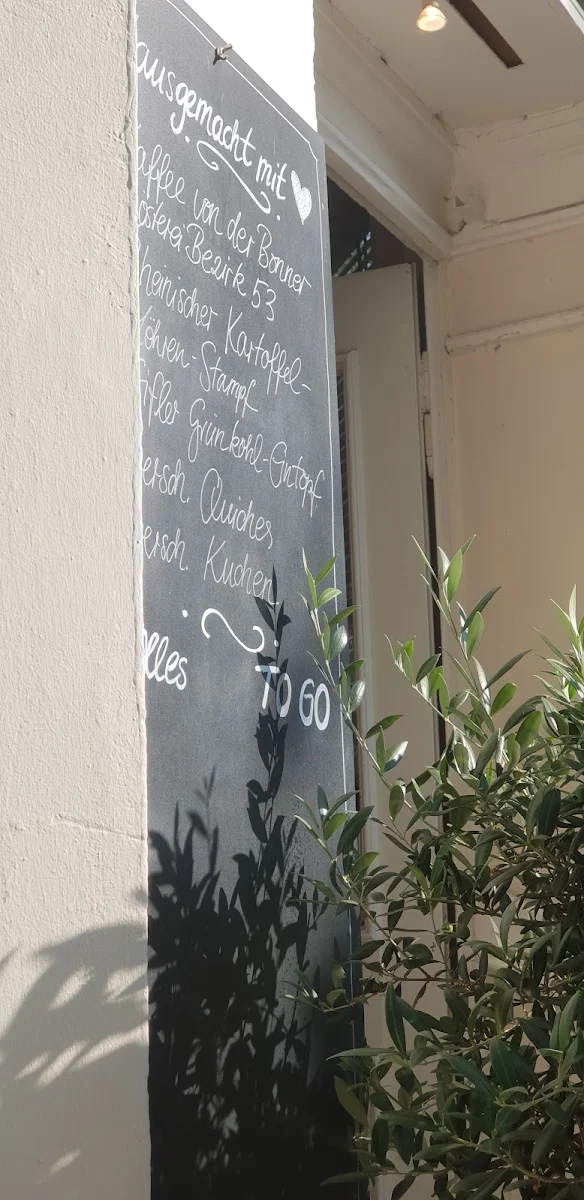 ausgemacht mit
affee von der Bonner
österei Bezirk 53
heinischer Kartoffel-
Möhren-Stampf
Eifler Grünkohl-Eintopf
ersch. Quiches
ersch. Kuchen
alles TO GO